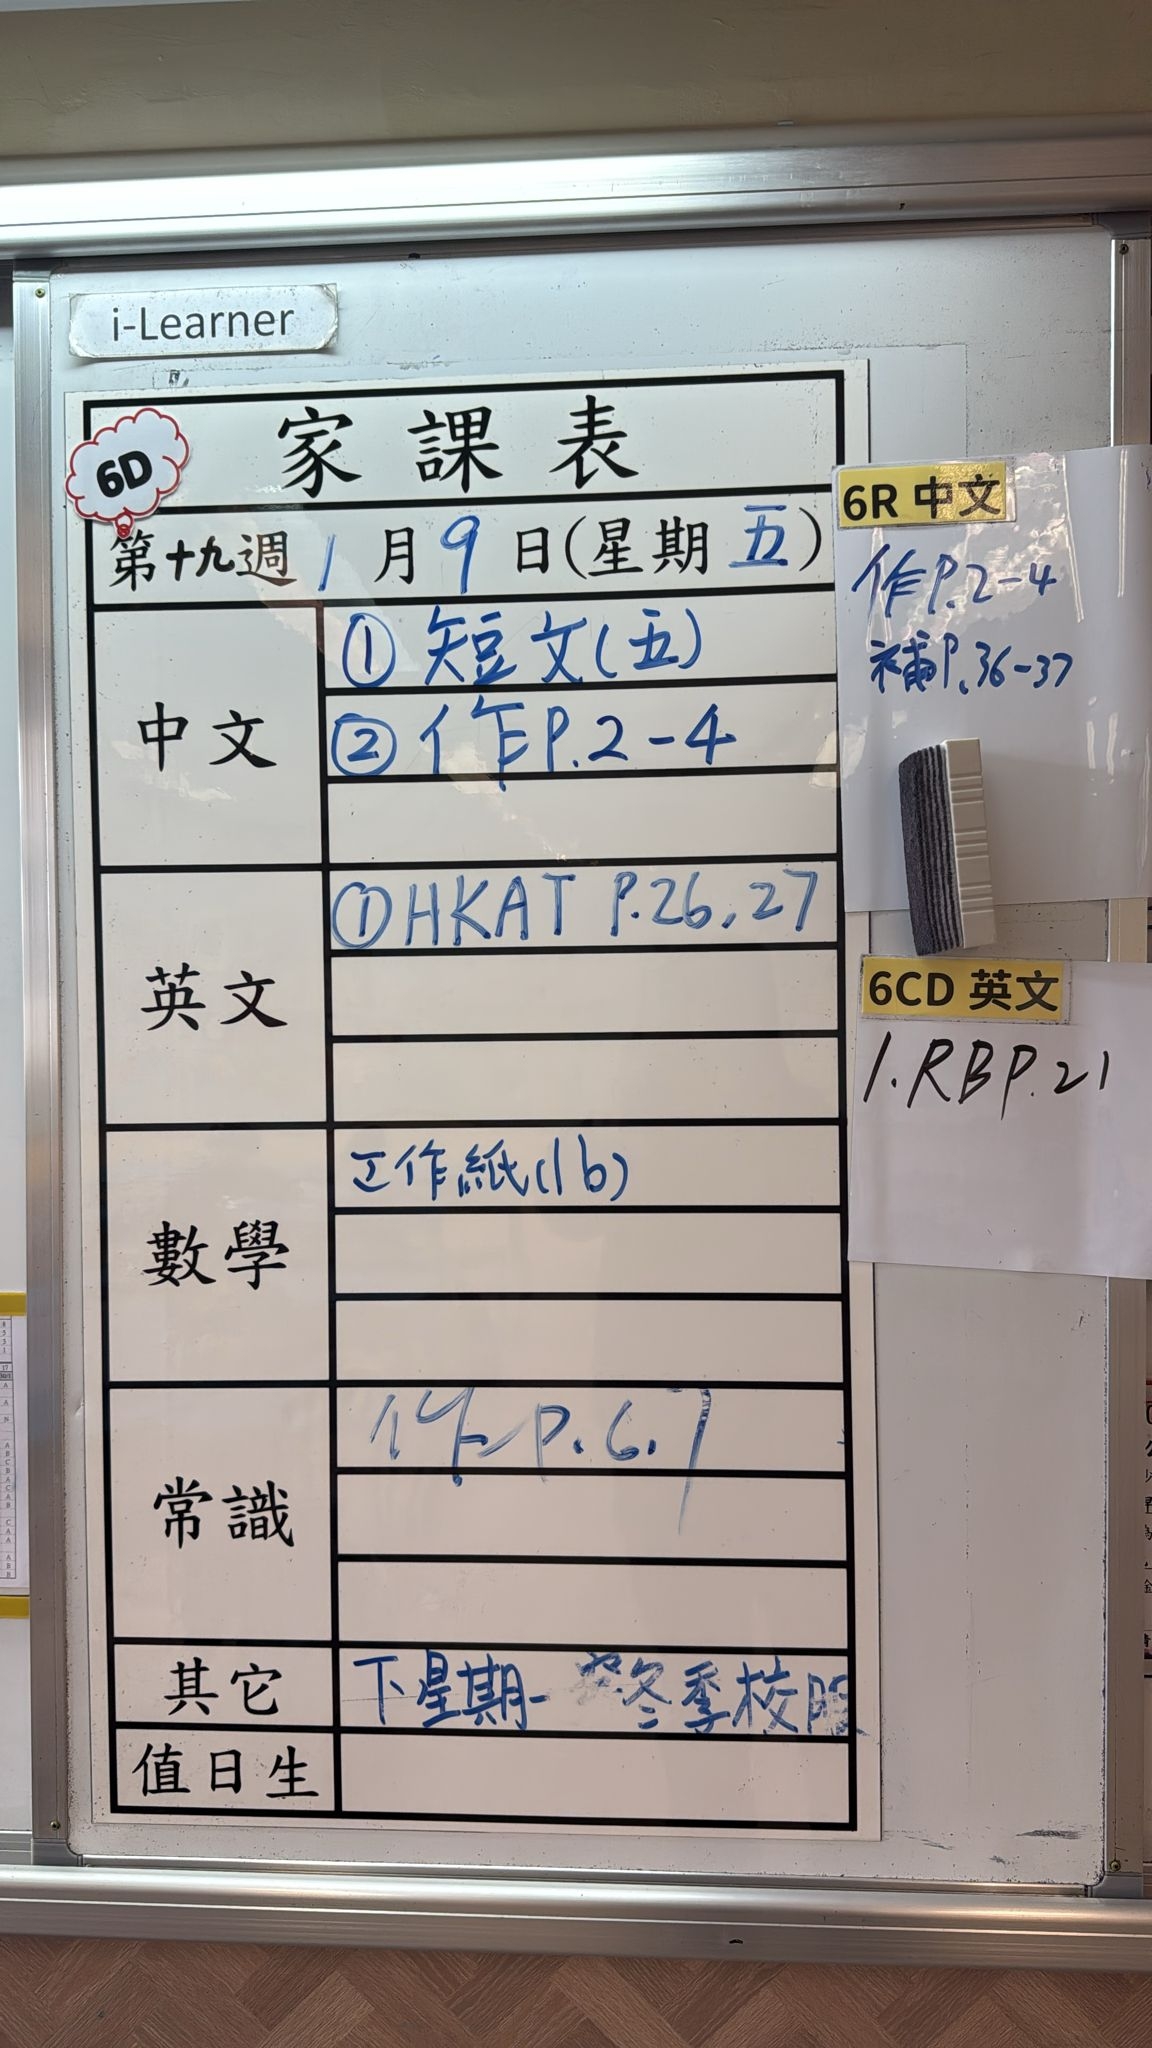 i-Learner
6D
家課表
第十九週 1月9日(星期五)
中文
① 短文(五)
② 作P.2-4
英文
① HKAT P.26,27
數學
工作紙(1b)
常識
作P.6.7
其它
下星期一 冬季校服
值日生
6R 中文
作P.2-4
補P.36-37
6CD 英文
1.RBP.21